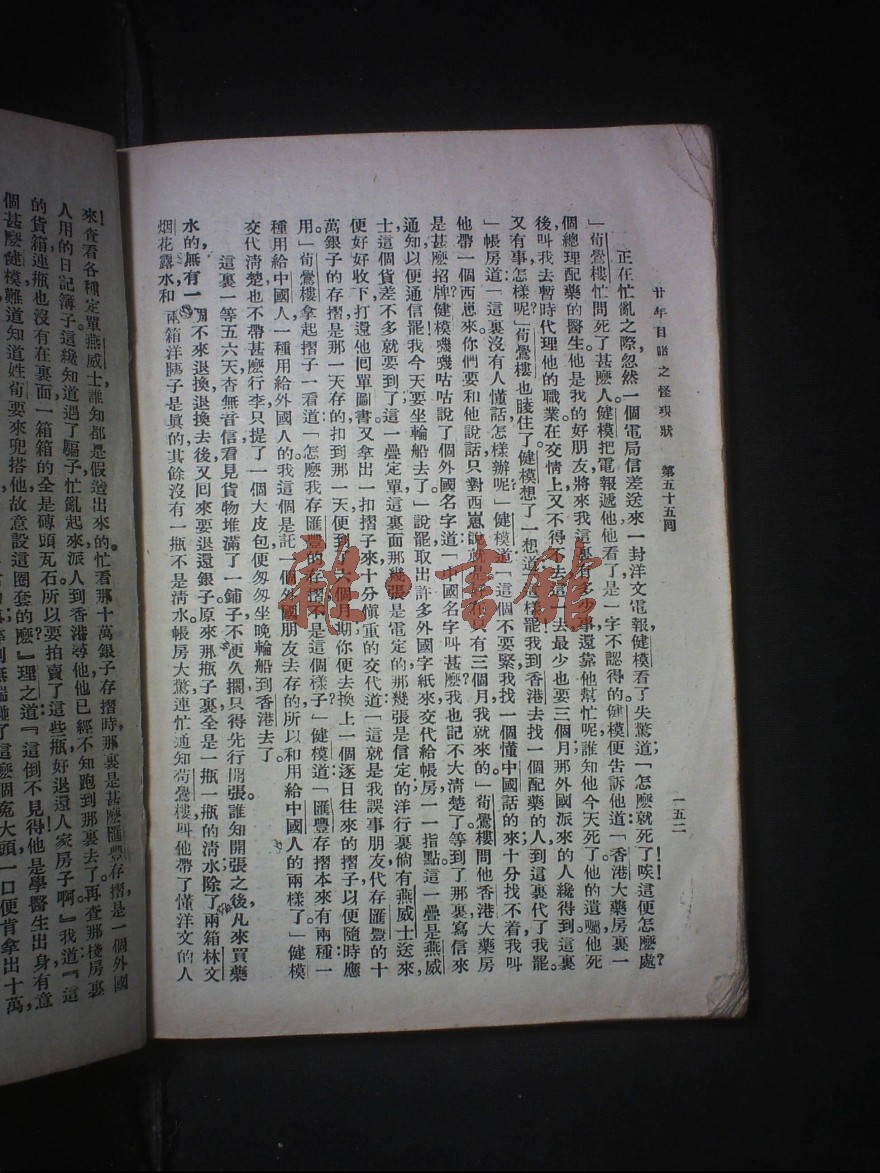 廿年目睹之怪現狀　第五十五回　一五二
正在忙亂之際，忽然一個電局信差送來一封洋文電報，健模看了失驚道：「怎麼就死了！唉！這便怎麼處？
」荀鷽樓忙問死了甚麼人，健模把電報遞他，他看了是一字不認得的。健模便告訴他道：「香港大藥房裏一
個總理配藥的醫生，他是我的好朋友，將來我這裏有多少事，還靠他幫忙呢；誰知他今天死了，他的遺囑，他死
後叫我去暫時代理他的職業，在交情上又不得不去，這一去最少也要三個月，那外國派來的人纔得到；這裏
又有事，怎樣呢？」荀鷽樓也睖住了。健模想了一想道：
」帳房道：「這裏沒有人懂話，怎樣辦呢？」健模道：「這個不要緊，我找一個懂中國話的來；十分找不着，我叫
他帶一個西崽來，你們要和他說話，只對西崽說就是。好在只有三個月，我就來的。」荀鷽樓問他香港大藥房
是甚麼招牌，健模嘰嘰咕咕說了個外國名字，道：「中國名字叫甚麼，我也記不大清楚了，等到了那裏，寫信來
通知，以便通信罷。我今天要坐輪船去了。」說罷，取出許多外國字紙來，交代給帳房，一一指點：這一疊是燕威
士這個貨，差不多就要到了；這一疊定單裏面，那幾張是電定的，那幾張是信定的；洋行裏倘有燕威士送來，
便好好收下，打還他回單圖書。又拿出一扣摺子來，十分慎重的交代道：「這就是我誤事朋友代存匯豐的十
萬銀子的存摺，是那一天存的，扣到那一天，便到了六個月期，你便去換上一個逐日往來的摺子，以便隨時應
用。」荀鷽樓拿起摺子一看道：「怎麼我存匯豐的存摺不是這個樣子？」健模道：「匯豐存摺本來有兩種：一
種用給中國人，一種用給外國人的。我這個是託一個外國朋友去存的，所以和用給中國人的兩樣了。」健模
交代清楚，也不帶甚麼行李，只提了一個大皮包，便匆匆坐晚輪船到香港去了。
這裏一等五六天，杳無音信。看見貨物堆滿了一鋪子，不便久擱，只得先行開張。誰知開張之後，凡來買藥
水的，無有一　不來退換；退換去後，又回來要退還銀子。原來那瓶子裏，全是一瓶一瓶的清水；除了兩箱林文
烟花露水和　兩箱洋胰子是真的，其餘沒有一瓶不是清水。帳房大驚，連忙通知荀鷽樓，叫他帶了懂洋文的人
來查看各種定單燕威士，誰知都是假造出來的。忙看那十萬銀子存摺時，那裏是甚麼匯豐存摺，是一個外國
人用的日記簿子。這纔知道遇了騙子，忙亂起來，派人到香港尋他，他已經不知跑到那裏去了。再查那棧房裏
的貨箱，連瓶也沒有在裏面，一箱箱的全是磚頭瓦石。所以要拍賣了這些瓶，好退還人家房子啊！』我道：『這
個甚麼健模，難道知道姓荀的要來兜搭他，故意設這圈套的麼？』理之道：『這倒不見得。他是學醫生出身，有意
這麼個冤大頭，一口便肯拿出十萬